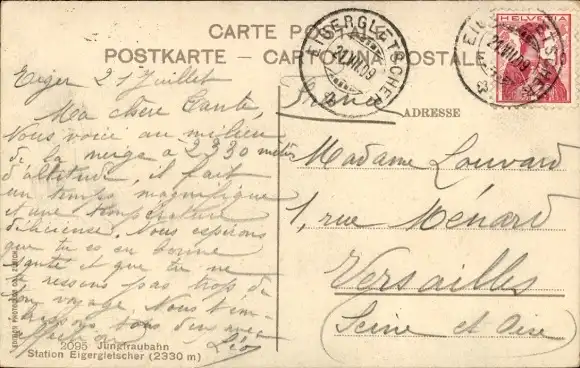 CARTE POSTALE
POSTKARTE — CARTOLINA POSTALE
EIGERGLETSCHER
21.VII.09
HELVETIA
France
ADRESSE
Eiger 21 Juillet
Ma chère Tante,
Nous voici au milieu
de la neige à 2330 mètres
d'altitude, il fait
un temps magnifique
et une température
délicieuse. Nous espérons
que tu es en bonne
santé et que tu ne
te ressens pas trop de
ton voyage. Nous t'em-
brassons tous
Léo
Madame Louvard
1, rue Ménard
Versailles
(Seine et Oise)
2095 Jungfraubahn
Station Eigergletscher (2330 m)